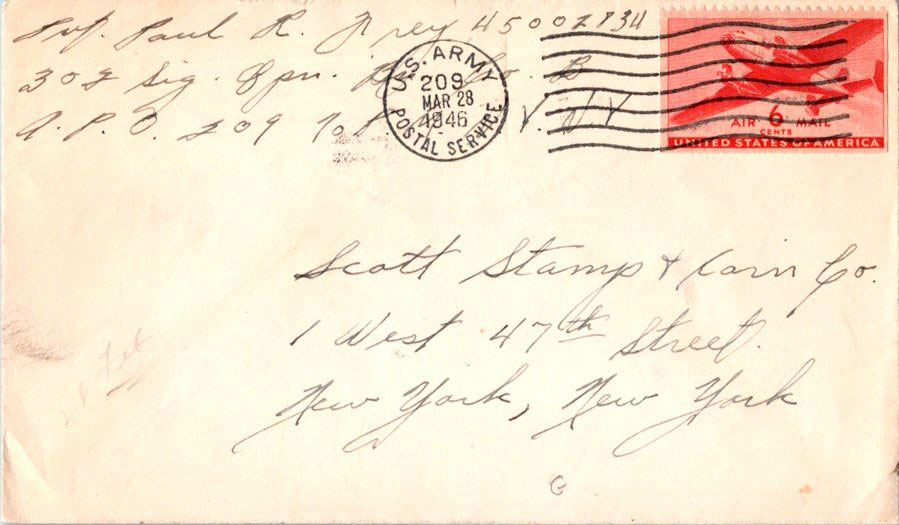 Pvt. Paul R. Frey 45002834
302 Sig. Opn. Bn. Co. B
A. P. O. 209 % P. M. N. Y. N. Y.
U.S. ARMY
209
MAR 28
1946
POSTAL SERVICE
AIR 6 MAIL
CENTS
UNITED STATES OF AMERICA
Scott Stamp & Coin Co.
1 West 47th Street.
New York, New York
G